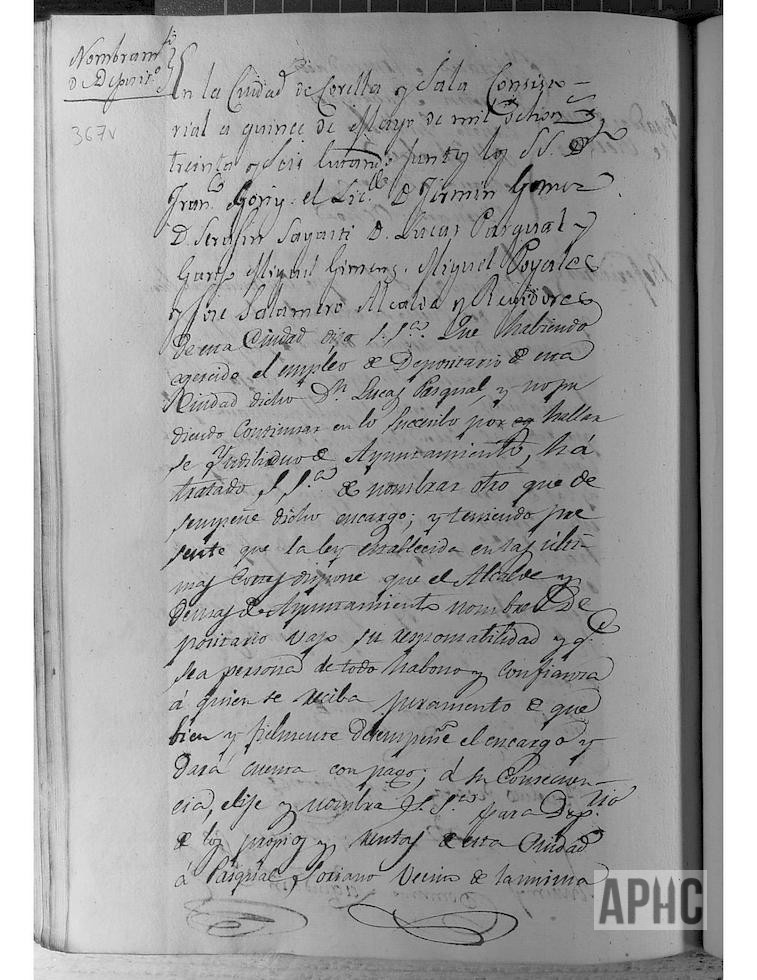 Nombramto
de Deposito
367v
En la Ciudad de Corella y Sala Consisto-
rial a quince de Mayo de mil ochoc.s
treinta y Seis estando juntos los SS. Dn
Fran.co Goñy el Lic.do D. Fermin Gomez
D. Serafin Sayasti D. Lucas Pasqual y
Garcs Miguel Gimenz, Miguel Poyales
y Jose Salamero Alcalde y Rexidores
de esta Ciudad dijo S. S.a Que habiendo
egercido el empleo de Depositario de esta
Ciudad dicho Dn. Lucas Pasqual, y no pu
diendo Continuar en lo Succesibo por hallar
se Yndibiduo de Ayuntamiento, há
tratado S. S.a de nombrar otro que de
sempeñe dicho encargo; y teniendo pre
sente que la ley establecida en las ulti-
mas Cortes dispone que el Alcalde y
demas de Ayuntamiento nombren De
positario vajo su responsabilidad y q.e
sea persona de todo habono y Confianza
á quien se reciba juramento de que
bien y fielmente desempeñe el encargo y
dará cuenta con pago; á su Consecuen-
cia, elije y nombra S. S.a para Dep.rio
de los propios y rentas de esta Ciudad
á Pasqual Soriano Vecino de la misma
APHC